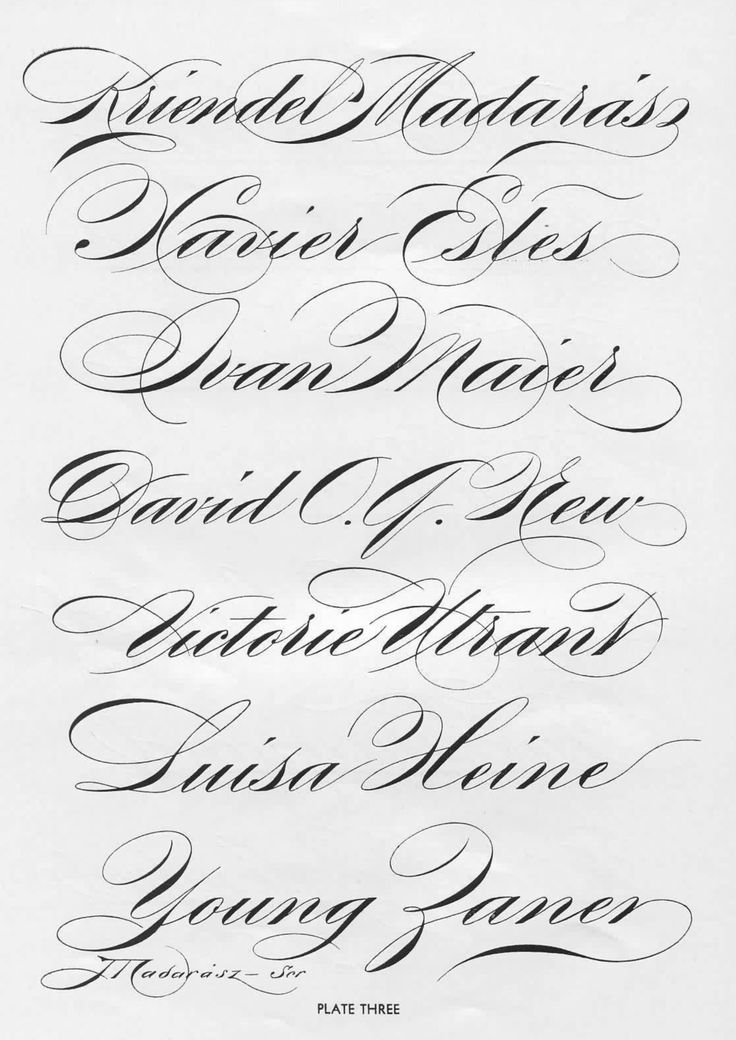 Kriendel Madarász
Xavier Estes
Ivan Maier
David O. G. New
Victorie Utrant
Luisa Heine
Young Zaner
Madarász – Scr
PLATE THREE